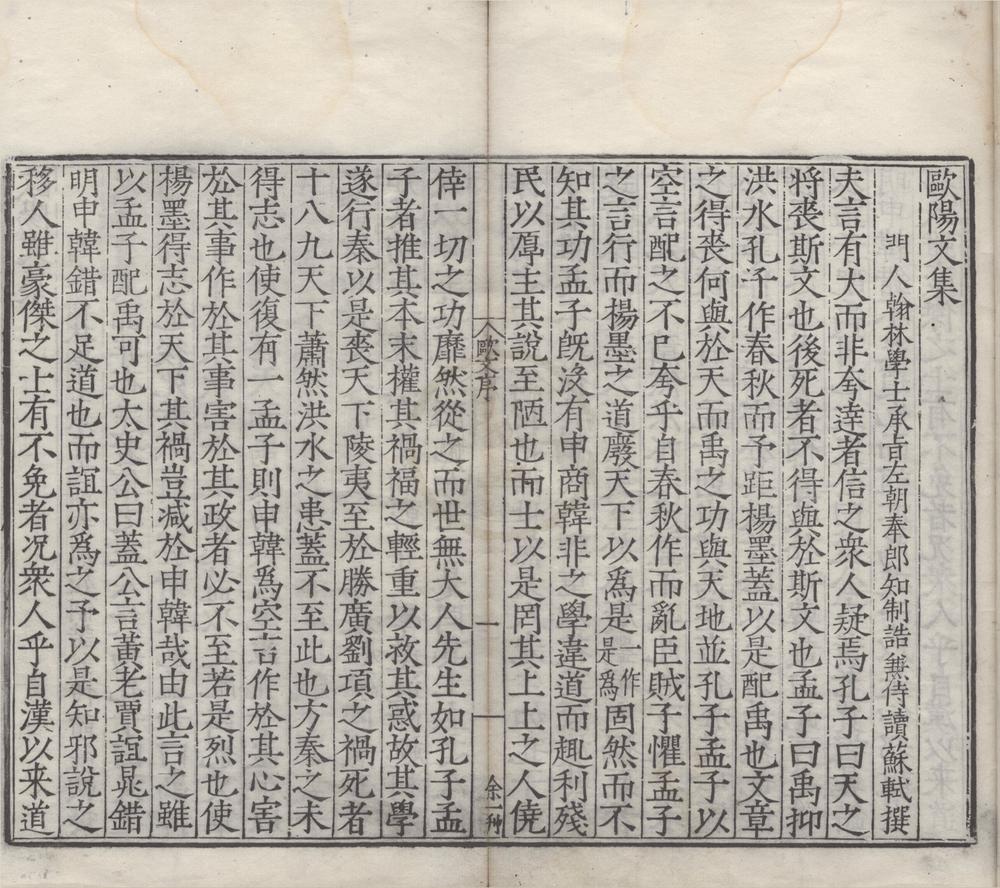 歐陽文集
門人翰林學士承旨左朝奉郎知制誥兼侍讀蘇軾撰
夫言有大而非夸達者信之衆人疑焉孔子曰天之
将喪斯文也後死者不得與於斯文也孟子曰禹抑
洪水孔子作春秋而予距楊墨蓋以是配禹也文章
之得喪何與於天而禹之功與天地並孔子孟子以
空言配之不已夸乎自春秋作而亂臣賊子懼孟子
之言行而楊墨之道廢天下以爲是一作是爲固然而不
知其功孟子旣没有申商韓非之學違道而趨利殘
民以厚主其說至陋也而士以是罔其上上之人僥
歐文序
一
余一种
倖一切之功靡然從之而世無大人先生如孔子孟
子者推其本末權其禍福之輕重以救其惑故其學
遂行秦以是喪天下陵夷至於勝廣劉項之禍死者
十八九天下蕭然洪水之患蓋不至此也方秦之未
得志也使復有一孟子則申韓爲空言作於其心害
於其事作於其事害於其政者必不至若是烈也使
楊墨得志於天下其禍豈减於申韓哉由此言之雖
以孟子配禹可也太史公曰蓋公言黃老賈誼晁錯
明申韓錯不足道也而誼亦爲之予以是知邪說之
移人雖豪傑之士有不免者况衆人乎自漢以来道